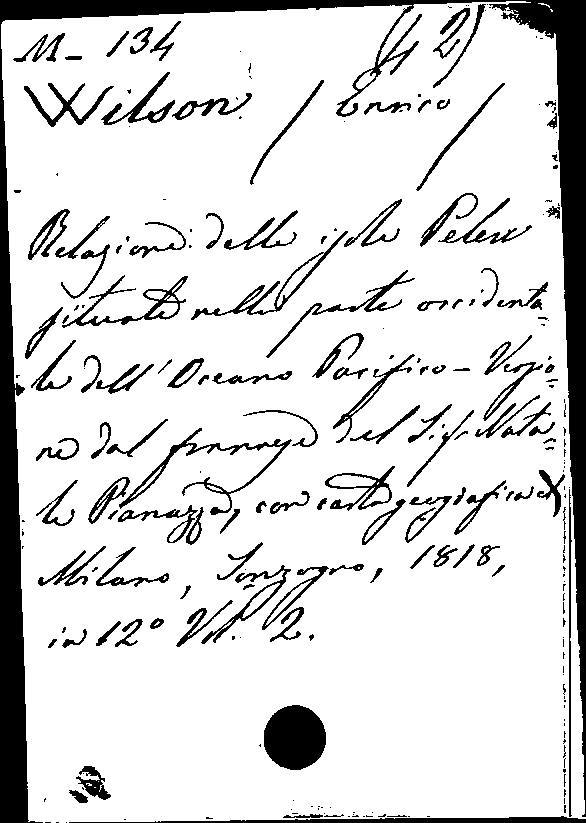 M - 134 (42)
Wilson / Enrico /
Relazione delle isole Pelew
situate nella parte occidenta=
le dell' Oceano Pacifico - Versio=
ne dal francese del Sigr. Nata=
le Pianazza, con carta geografica
Milano, Sonzogno, 1818,
in 12º Vol. 2.